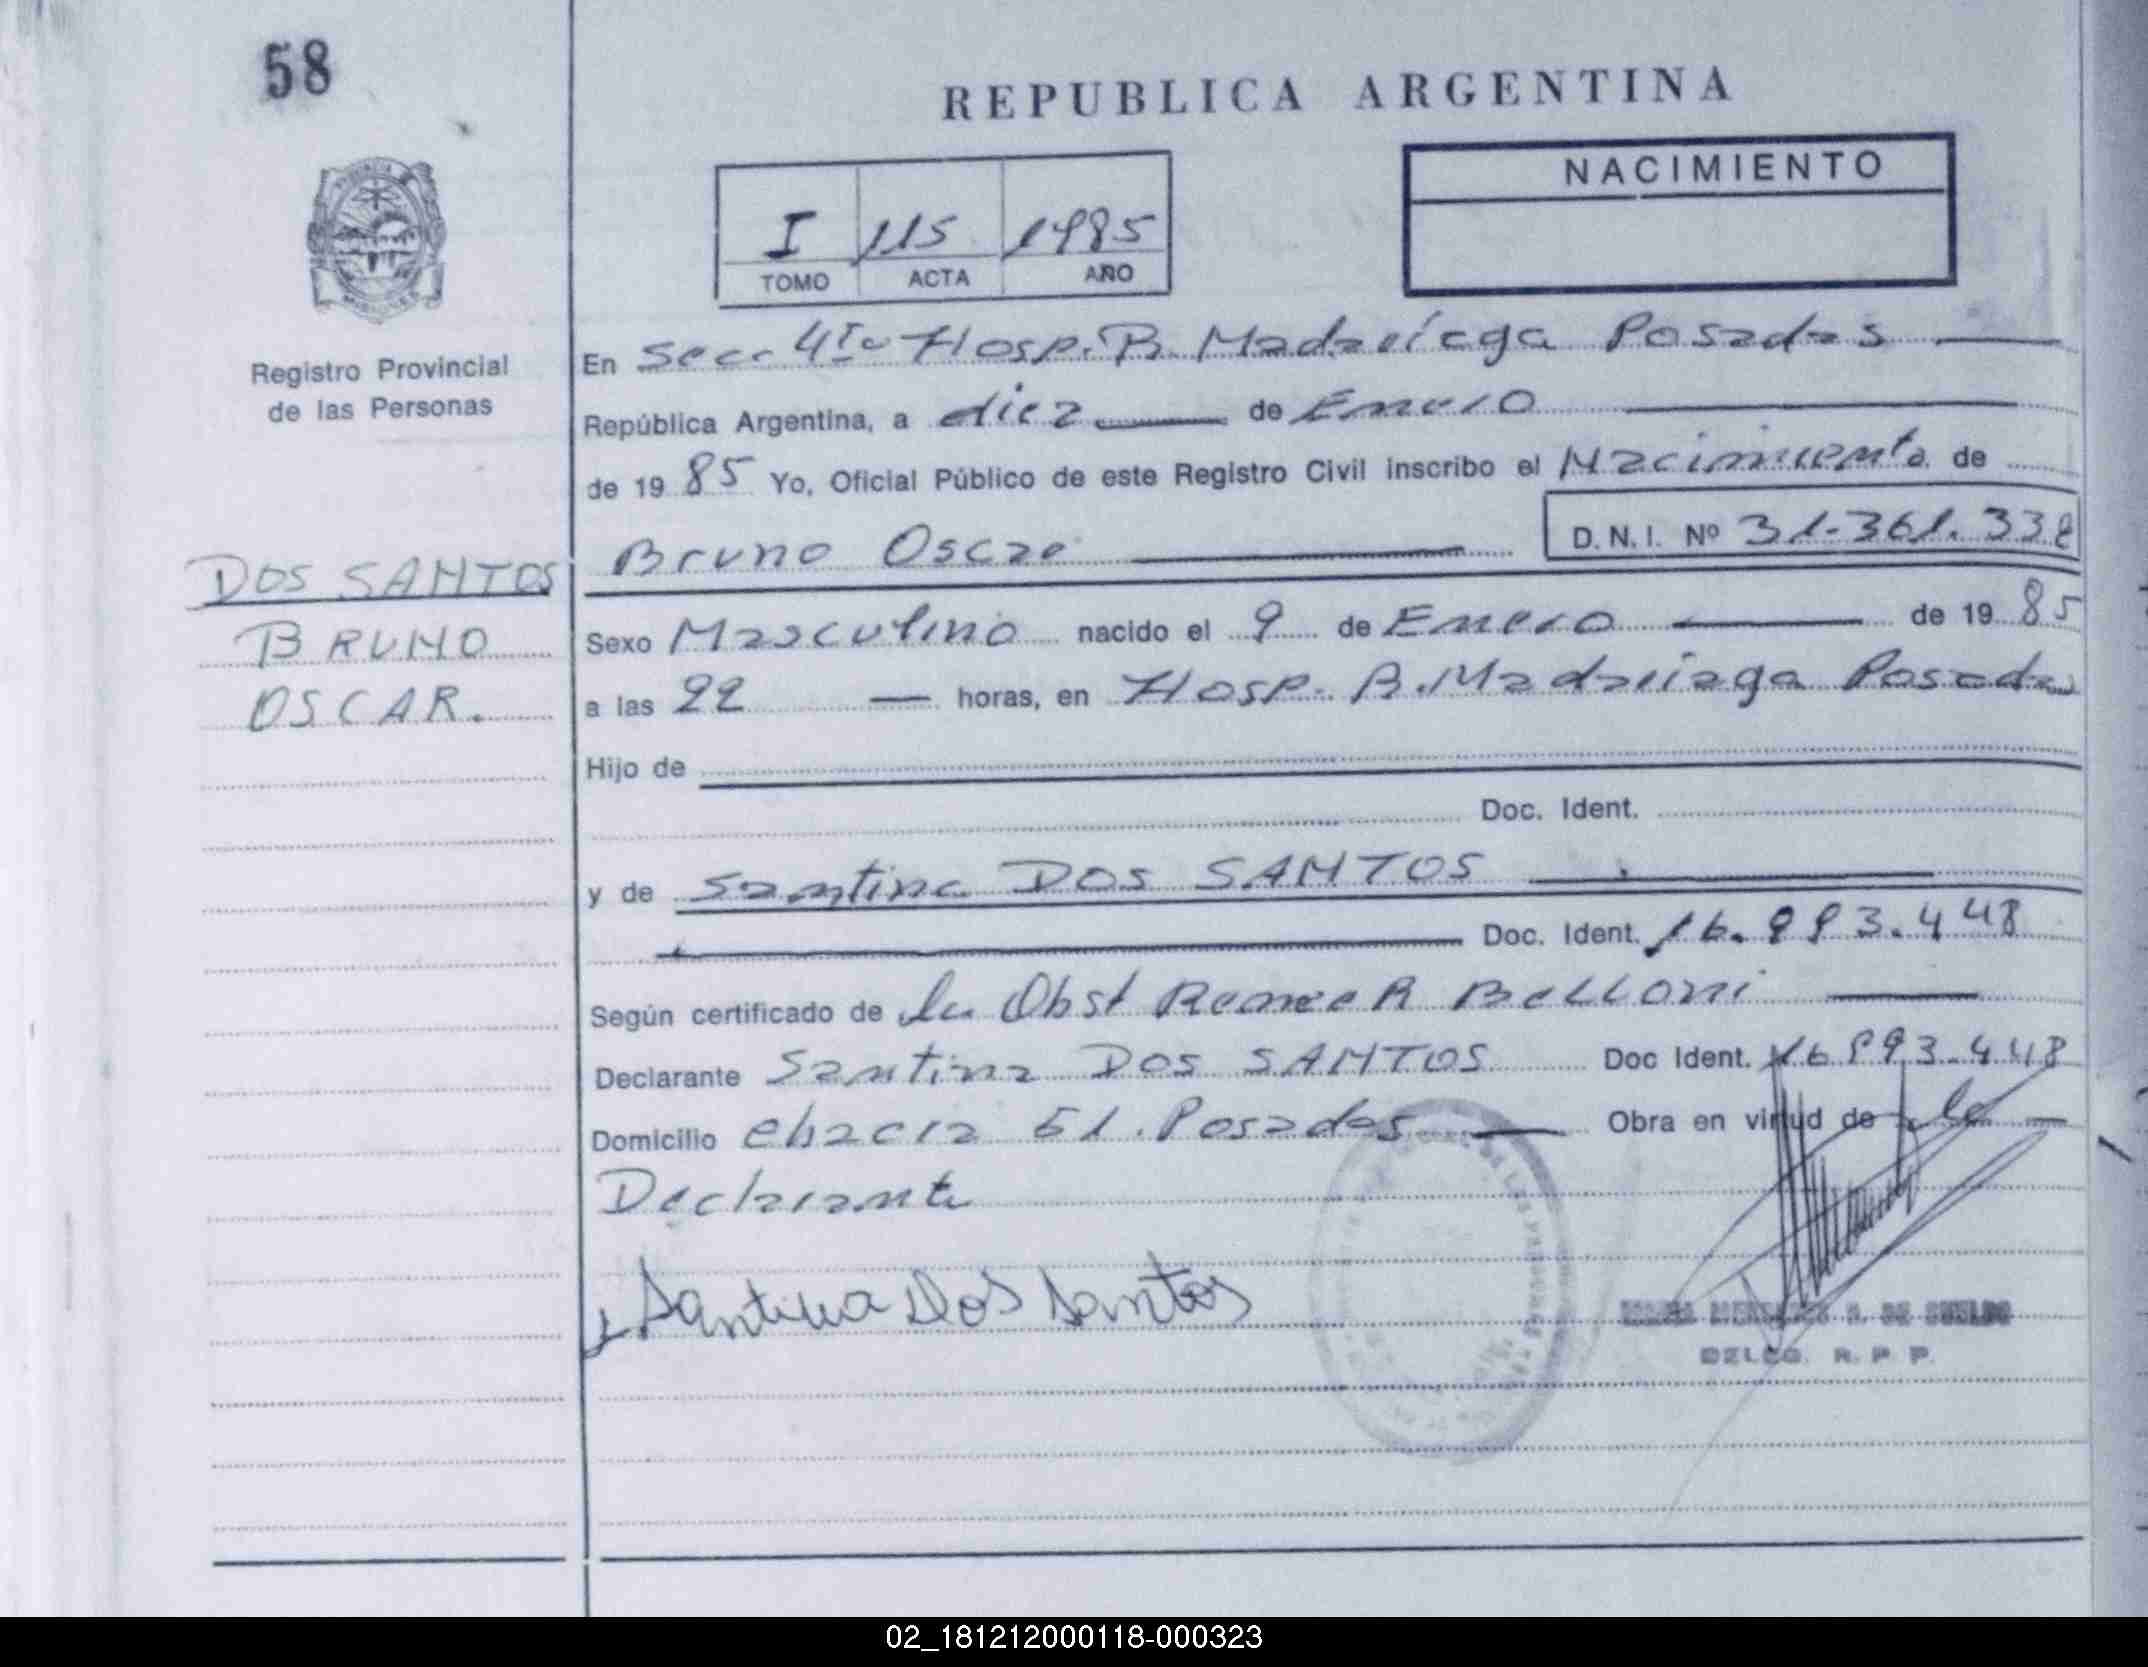 58
REPUBLICA ARGENTINA
NACIMIENTO
I 115 1985
TOMO ACTA AÑO
Registro Provincial
de las Personas
En Secc 4ta Hosp. R. Madariaga Posadas
República Argentina, a diez de Enero
de 19 85 Yo, Oficial Público de este Registro Civil inscribo el Nacimiento de
Bruno Oscar D.N.I. Nº 31.361.338
DOS SANTOS
BRUNO
OSCAR.
Sexo Masculino nacido el 9 de Enero de 19 85
a las 22 horas, en Hosp. R. Madariaga Posadas
Hijo de
Doc. Ident.
y de Santina DOS SANTOS
Doc. Ident. 16.993.448
Según certificado de la Obst R Belloni
Declarante Santina DOS SANTOS Doc Ident. 16.993.448
Domicilio Chacra 51. Posadas Obra en virtud de la
Declarante
Santina Dos Santos
DELEG. R. P. P.
02_181212000118-000323